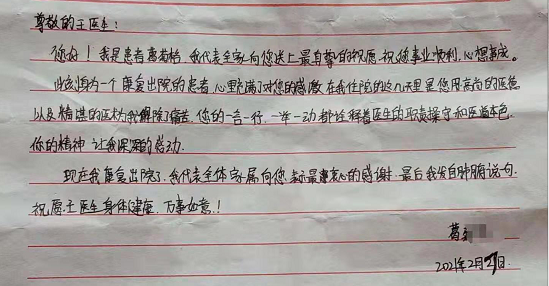 尊敬的王医生：
您好！我是患者葛菊格，我代表全家向您送上最真挚的祝愿，祝您事业顺利，心想事成。
此刻作为一个康复出院的患者，心里充满了对您的感激，在我住院的这几天里是您用高尚的医德
以及精湛的医术为我解除了痛苦，您的一言一行，一举一动都诠释着医生的职责操守和医道本色
你的精神让我深深的感动.
现在我康复出院了，我代表全体家属向您表示最衷心的感谢.最后我发自肺腑说句.
祝愿王医生身体健康，万事如意！
葛
2021年2月21日.